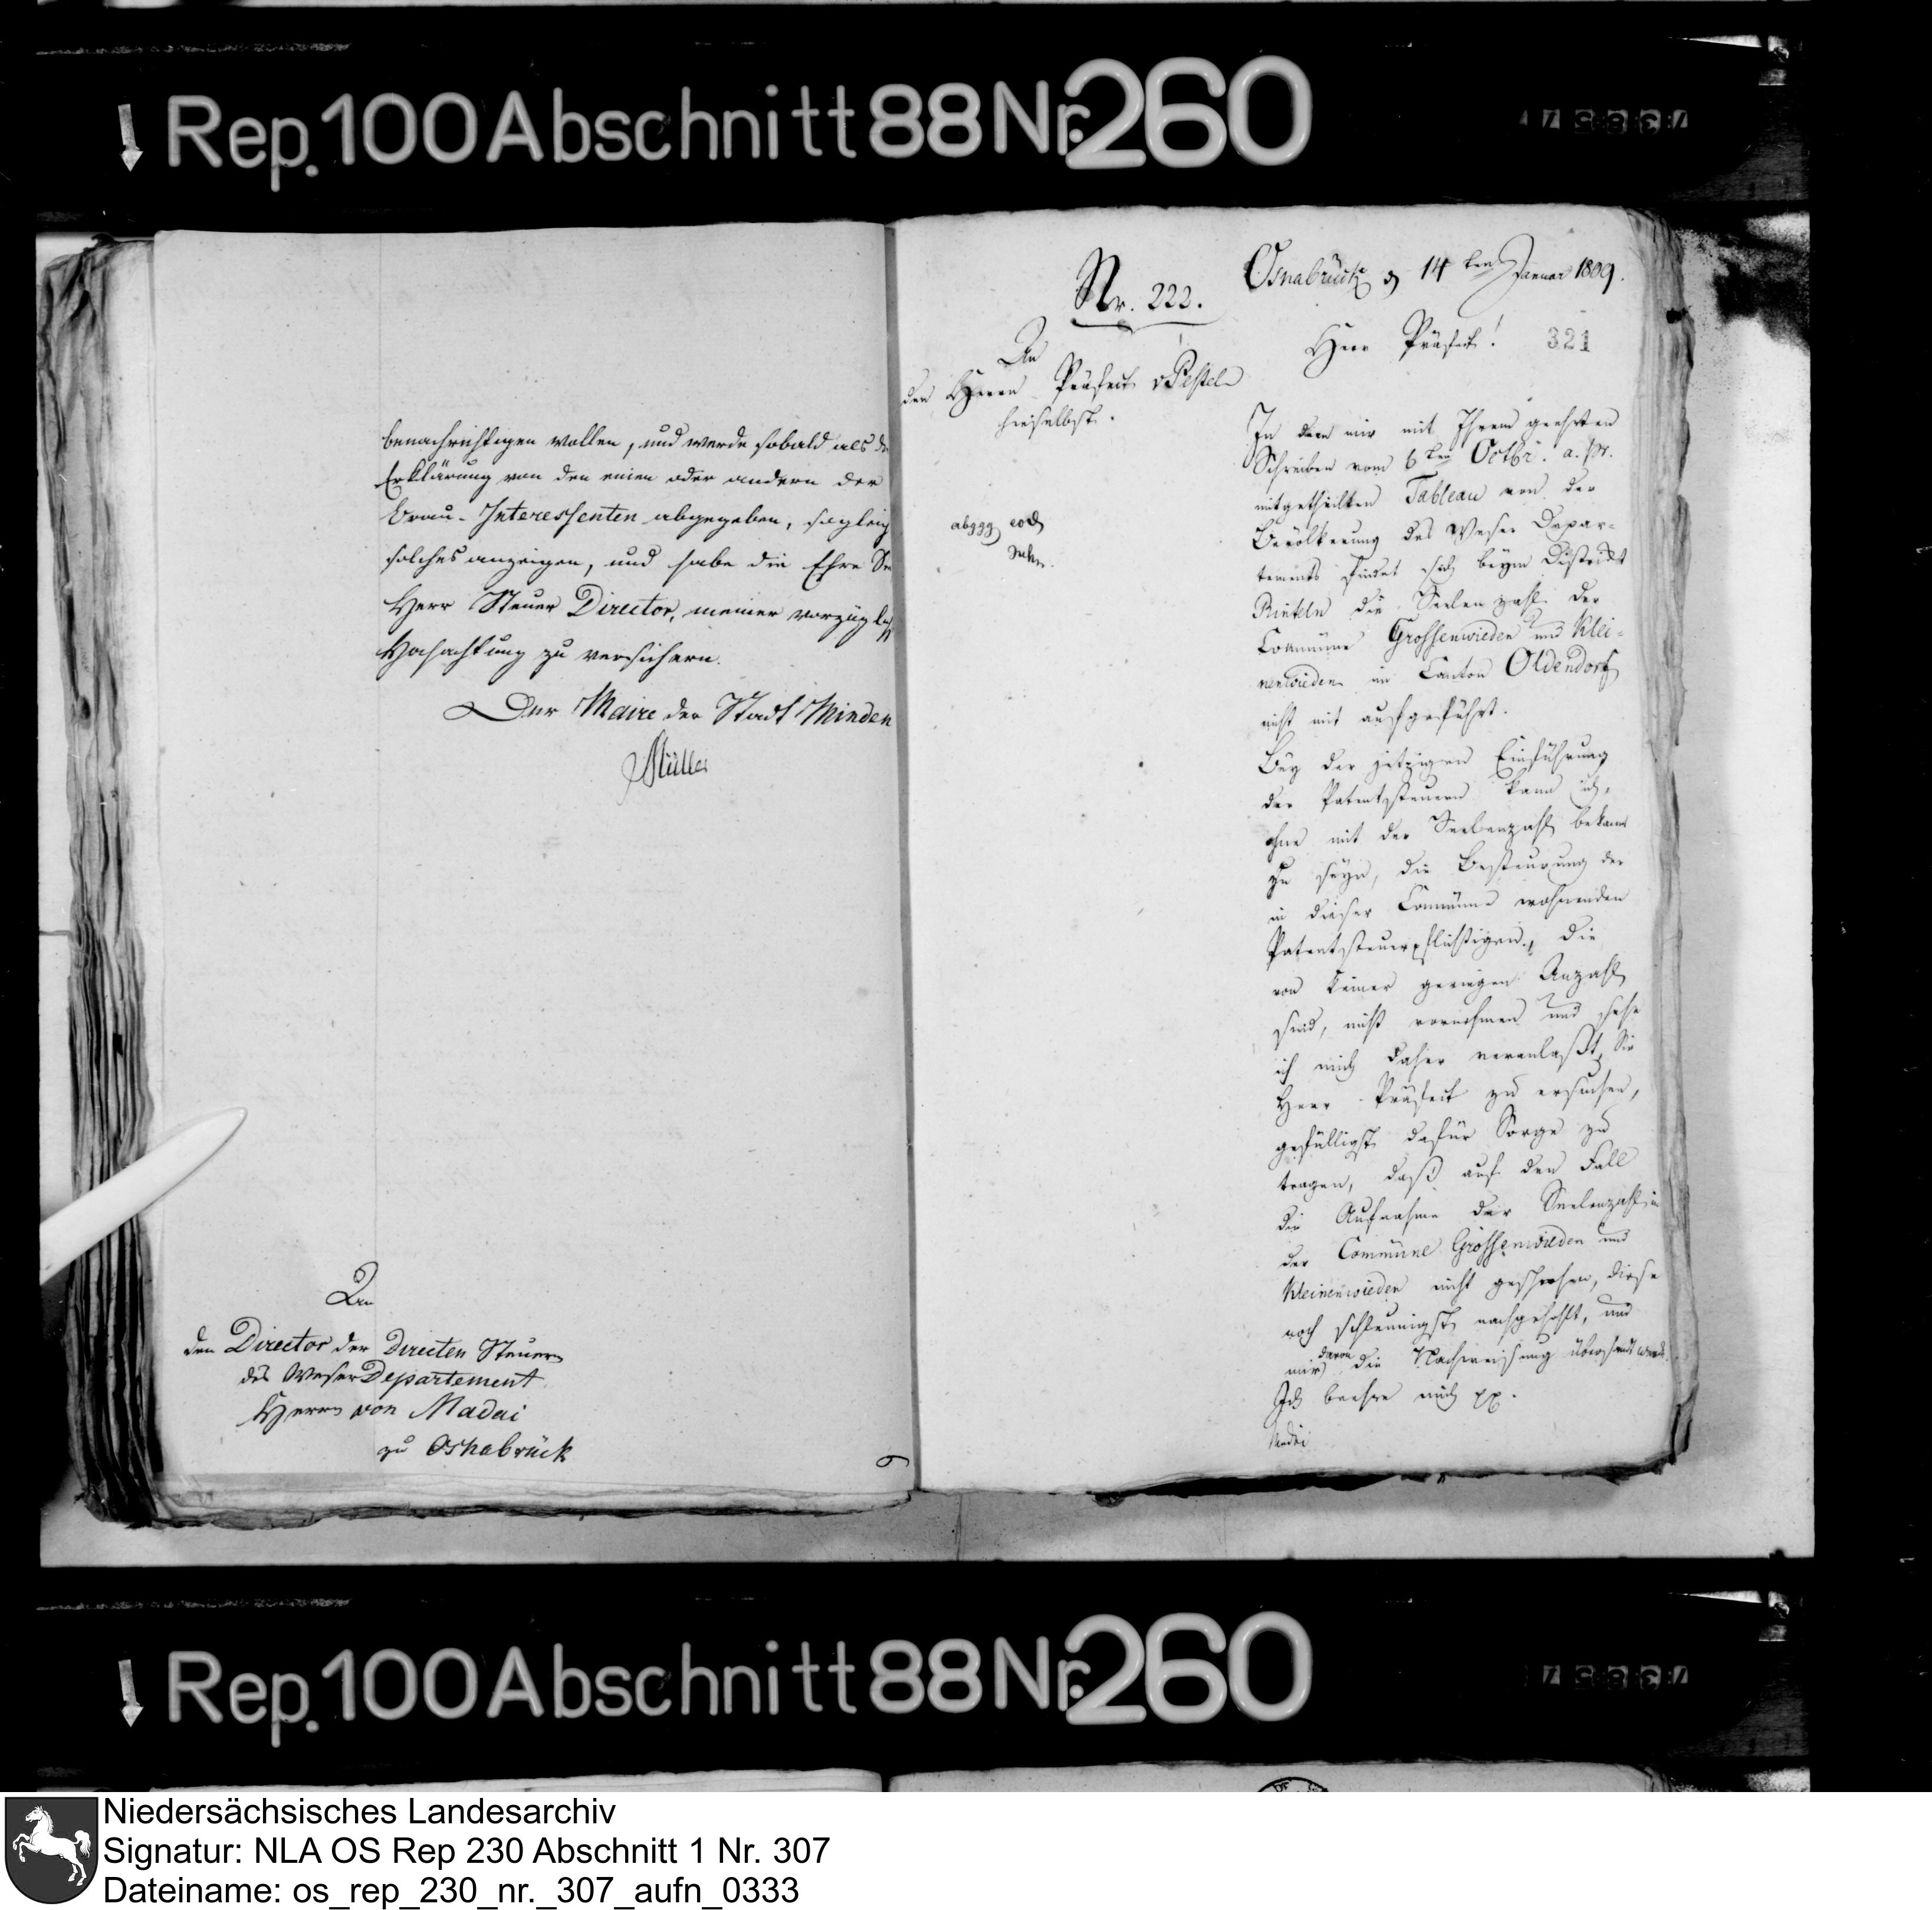 Rep. 100 Abschnitt 88 Nr. 260
benachrichtigen wollen, und werde sobald als d
Erklärung von den einen oder andern der
Brau-Interessenten abgegeben, sogleich
solches anzeigen, und habe die Ehre Sie
Herr Steuer Director, meiner vorzüglich
Hochachtung zu versichern.
Der Maire der Stadt Minden
Müller
An
den Director der Directen Steuern
des Weser Departement
Herrn von Madai
zu Osnabrück
Nr. 222.
An
den Herrn Präfect v Pestel
hieselbst.
abggg eod
Osnabrück d 14ten Januar 1809.
Herr Präfect!
321
In dem mir mit Ihrem geehrten
Schreiben vom 6ten Octbr. a. pr.
mitgetheilten Tableau von der
Bevölkerung des Weser Depar-
tements findet sich beym District
Rinteln die Seelenzahl der
Commüne Grossenwieden und Klei-
nenwieden im Canton Oldendorf
nicht mit aufgeführt.
Bey der jetzigen Einführung
der Patentsteuern kann ich,
ohne mit der Seelenzahl bekannt
zu seyn, die Besteurung der
in dieser Commüne wohnenden
Patentsteuerpflichtigen, die
von keiner geringen Anzahl
sind, nicht vornehmen und sehe
ich mich daher veranlaßt, Sie
Herr Präfect zu ersuchen,
gefälligst dafür Sorge zu
tragen, daß auf den Fall
die Aufnahme der Seelenzahl in
der Commüne Grossenwieden und
Kleinenwieden nicht geschehen, diese
noch schleunigst nachgehohlt, und
mir davon die Nachweisung übersandt werde.
Ich beehre mich pp.
Madai
Rep. 100 Abschnitt 88 Nr. 260
Niedersächsisches Landesarchiv
Signatur: NLA OS Rep 230 Abschnitt 1 Nr. 307
Dateiname: os_rep_230_nr._307_aufn_0333